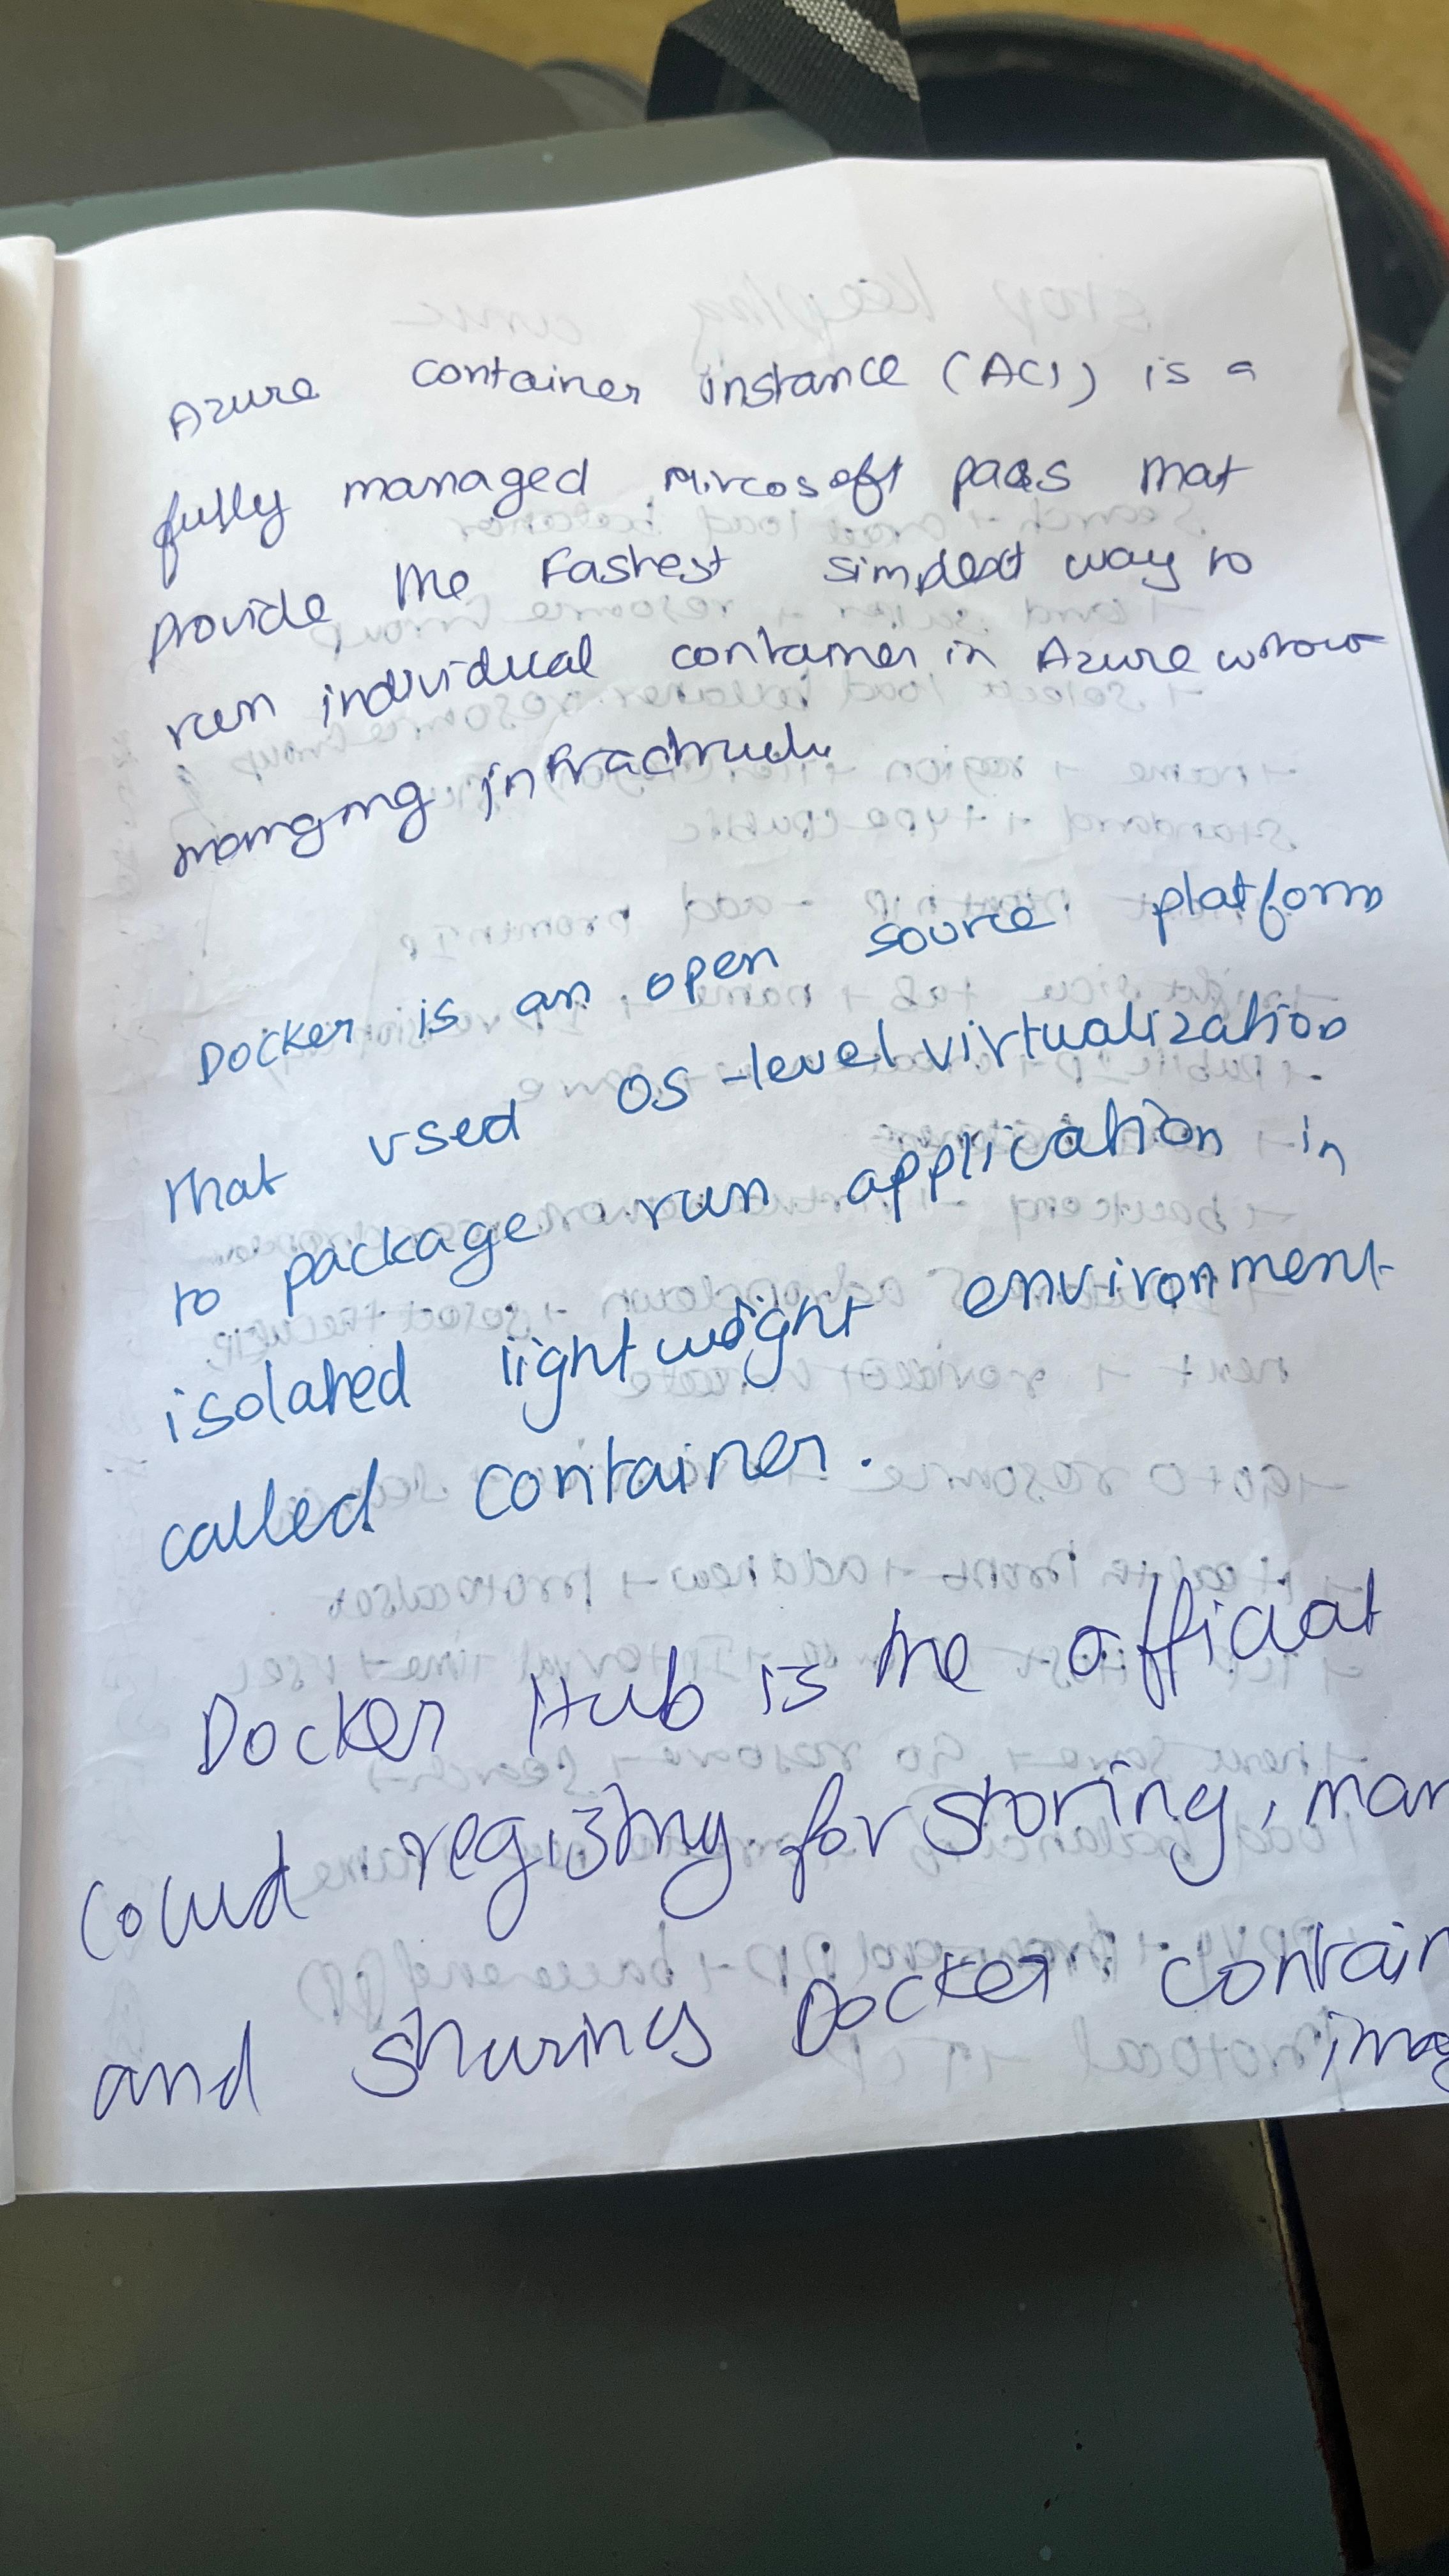 Azure container instance (ACI) is a
fully managed Mircosoft paas that
provide the Fastest simplest way to
run individual container in Azure
managing
Docker is an open source platform
that used OS-level virtualization
to package run application in
isolated lightweight environment
called container.
Docker Hub is the official
registry for storing, man
and sharing Docker contain
imag